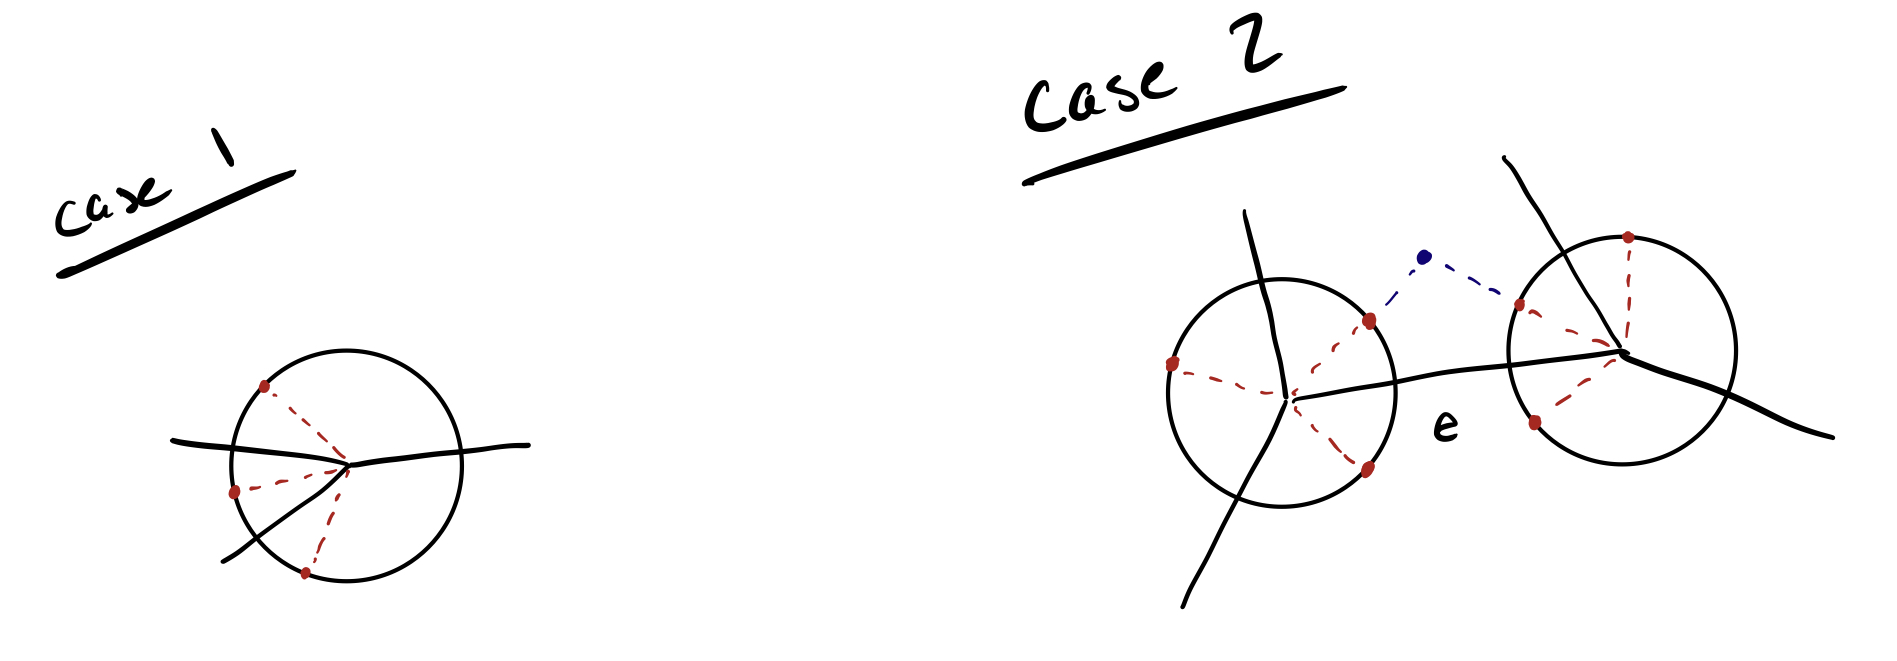 case 1
Case 2
e